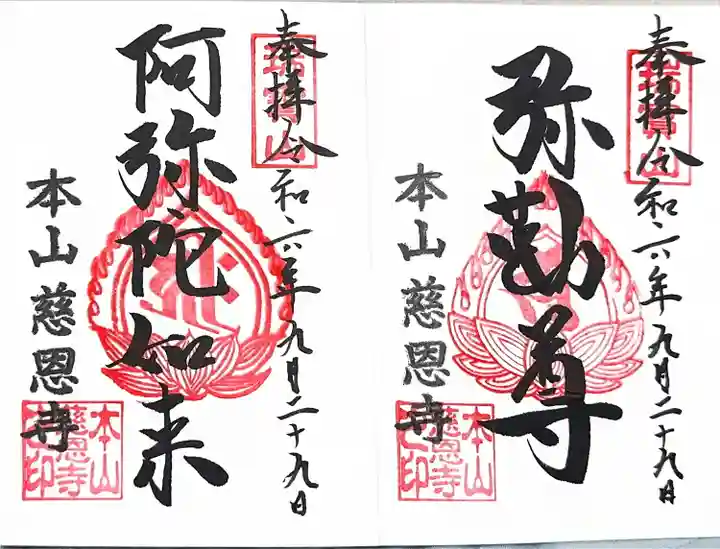 奉拝 令和六年九月二十九日
弥勒尊
本山慈恩寺
瑞寶山
本山
慈恩寺
之印
奉拝 令和六年九月二十九日
阿弥陀如来
本山慈恩寺
瑞寶山
本山
慈恩寺
之印